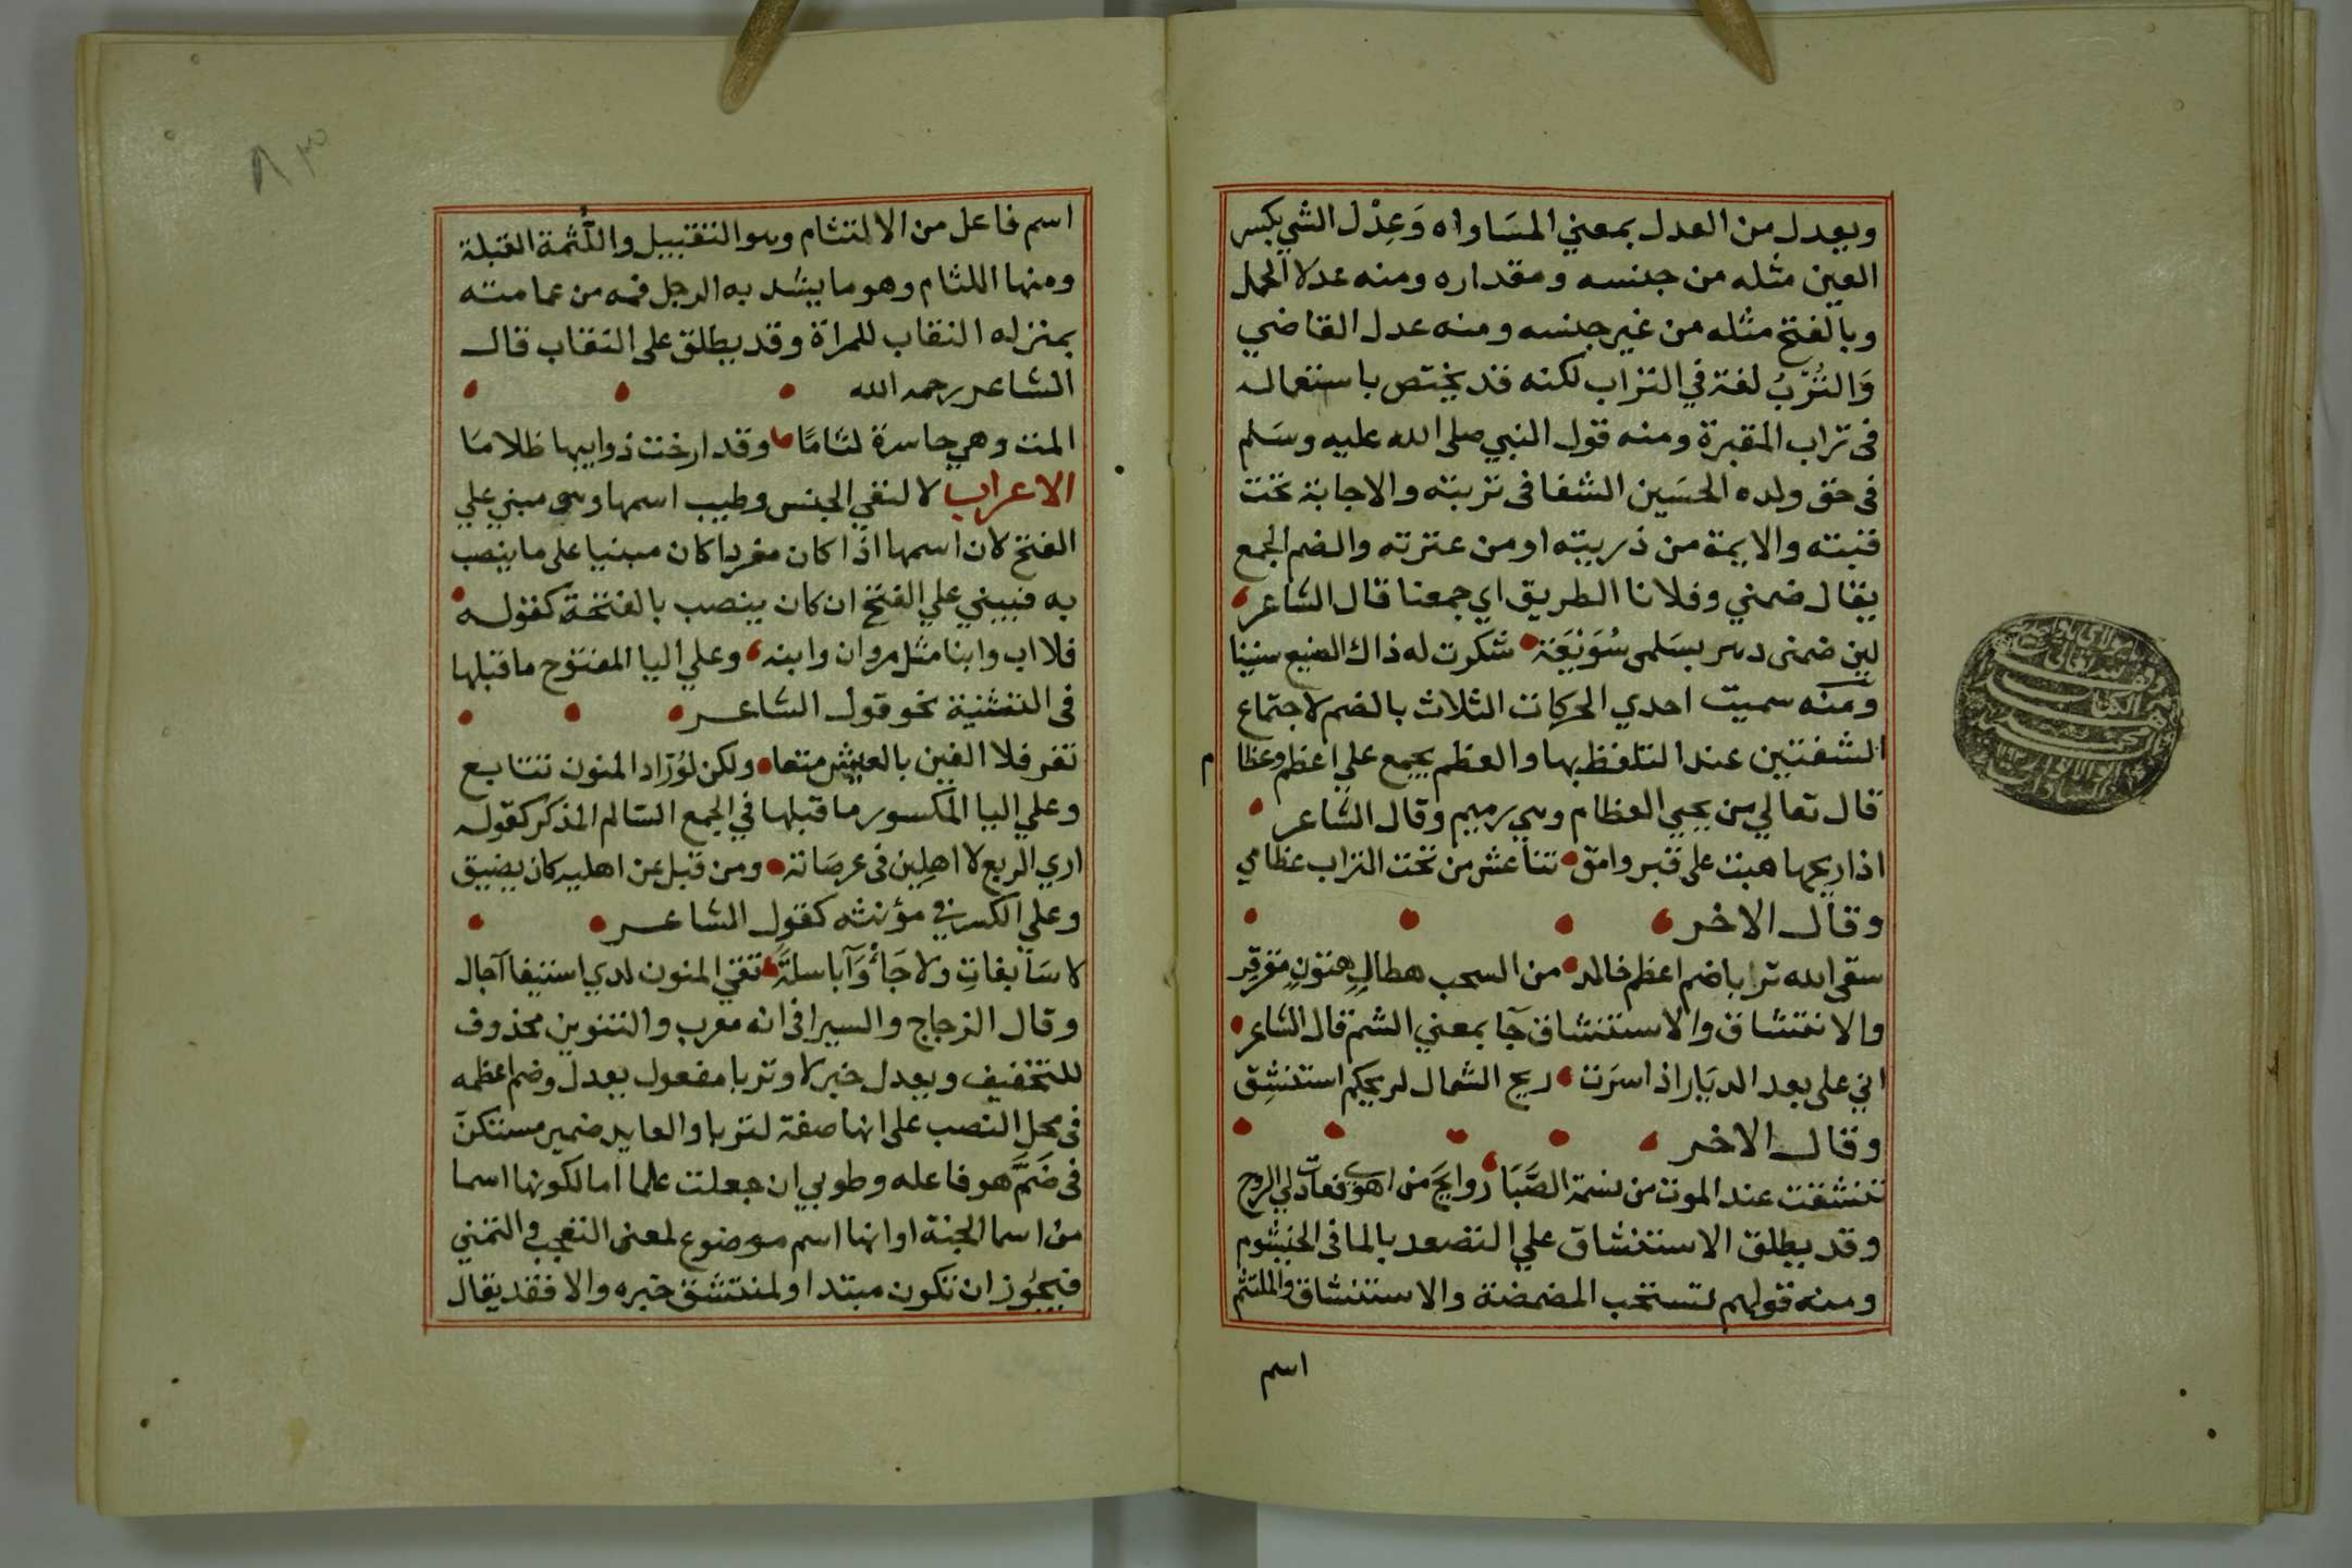 ويعدل من العدل بمعني المسَاواه وَعِدْل الشي بكسر
العين مثله من جنسه ومقداره ومنه عدلا الحمل
وبالفتح مثله من غير جنسه ومنه عدل القاضي
وَالتُرْبُ لغة في التراب لكنه قد يختص باستعماله
فى تراب المقبرة ومنه قول النبي صلى الله عليه وسَلم
فى حق ولده الحسَين الشفا فى تربته والاجابة تحت
قبته والايمة من ذريته او من عترته والضم الجمع
يقال ضمني وفلانا الطريق اي جمعنا قال الشاعر
لين ضمنى دهر بسَلمى سُوَيْعَة شكرت له ذاك الصنيع سنينا
ومنه سميت احدي الحركات الثلاث بالضم لاجتماع
الشفتين عند التلفظ بها والعظم يجمع علي اعظم وعظا م
قال تعالي من يحيي العظام وهي رميم وقال الشاعر
اذا ريحها هبت على قبر وامق تناعش من تحت التراب عظامي
وقال الاخر
سقى الله تربا ضم اعظم خالد من السحب هطالٍ هتونٍ مقرقِر
والانتشاق والاستنشاق جآ بمعني الشم قال الشاعر
اني على بعد الديَار اذا سرَت ريح الشمال لريحكم استنشِق
وقال الاخر
تنشقت عند الموت من نسمة الصَّبَا روايحَ من اهوي فعادت لي الروح
وقد يطلق الاستنشاق علي التصعد بالما فى الخيشوم
ومنه قولهم تستحب المضمضة والاستنشاق والملتثم
اسم
اسم فاعل من الالتثام وهو التقبيل واللُثمة القبلة
ومنها اللثام وهو ما يشد به الرجل فمه من عمامته
بمنزله النقاب للمراة وقد يطلق على النقاب قال
الشاعر رحمه الله
المت وهي حاسرة لثامًا وقد ارخت ذوايبها ظلامَا
الاعراب لا لنفي الجنس وطيب اسمها وهي مبني علي
الفتح لان اسمها اذا كان مفردا كان مبنيا على ما ينصب
به فيبني علي الفتح ان كان ينصب بالفتحة كقوله
فلا اب وابنا مثل مروان وابنه وعلي اليا المفتوح ما قبلها
فى التثنية نحو قول الشاعر
تعز فلا الفين بالعيش متعا ولكن لوُرّاد المنون تتابع
وعلي اليا المكسور ما قبلها في الجمع السَالم المذكر كقوله
اري الربع لا اهلِين فى عرصَاته ومن قبل عن اهليه كان يضيق
وعلي الكسر في مؤنثه كقول الشاعر
لا سَابغاتِ ولا جَأْوَآ باسلةً تقي المنون لدي استيفا آجال
وقال الزجاج والسيرافى انه معرب والتنوين محذوف
للتخفيف ويعدل خبر لا وتربا مفعول يعدل وضم اعظمه
فى محل النصب على انها صفة لتربا والعايد ضمير مستكن
فى ضَمَّ هو فاعله وطوبي ان جعلت علما اما لكونها اسما
من اسما الجنة او انها اسم موضوع لمعنى التعجب في التمني
فيجُوز ان تكون مبتدا ولمنتشق خبره والا فقد يقال